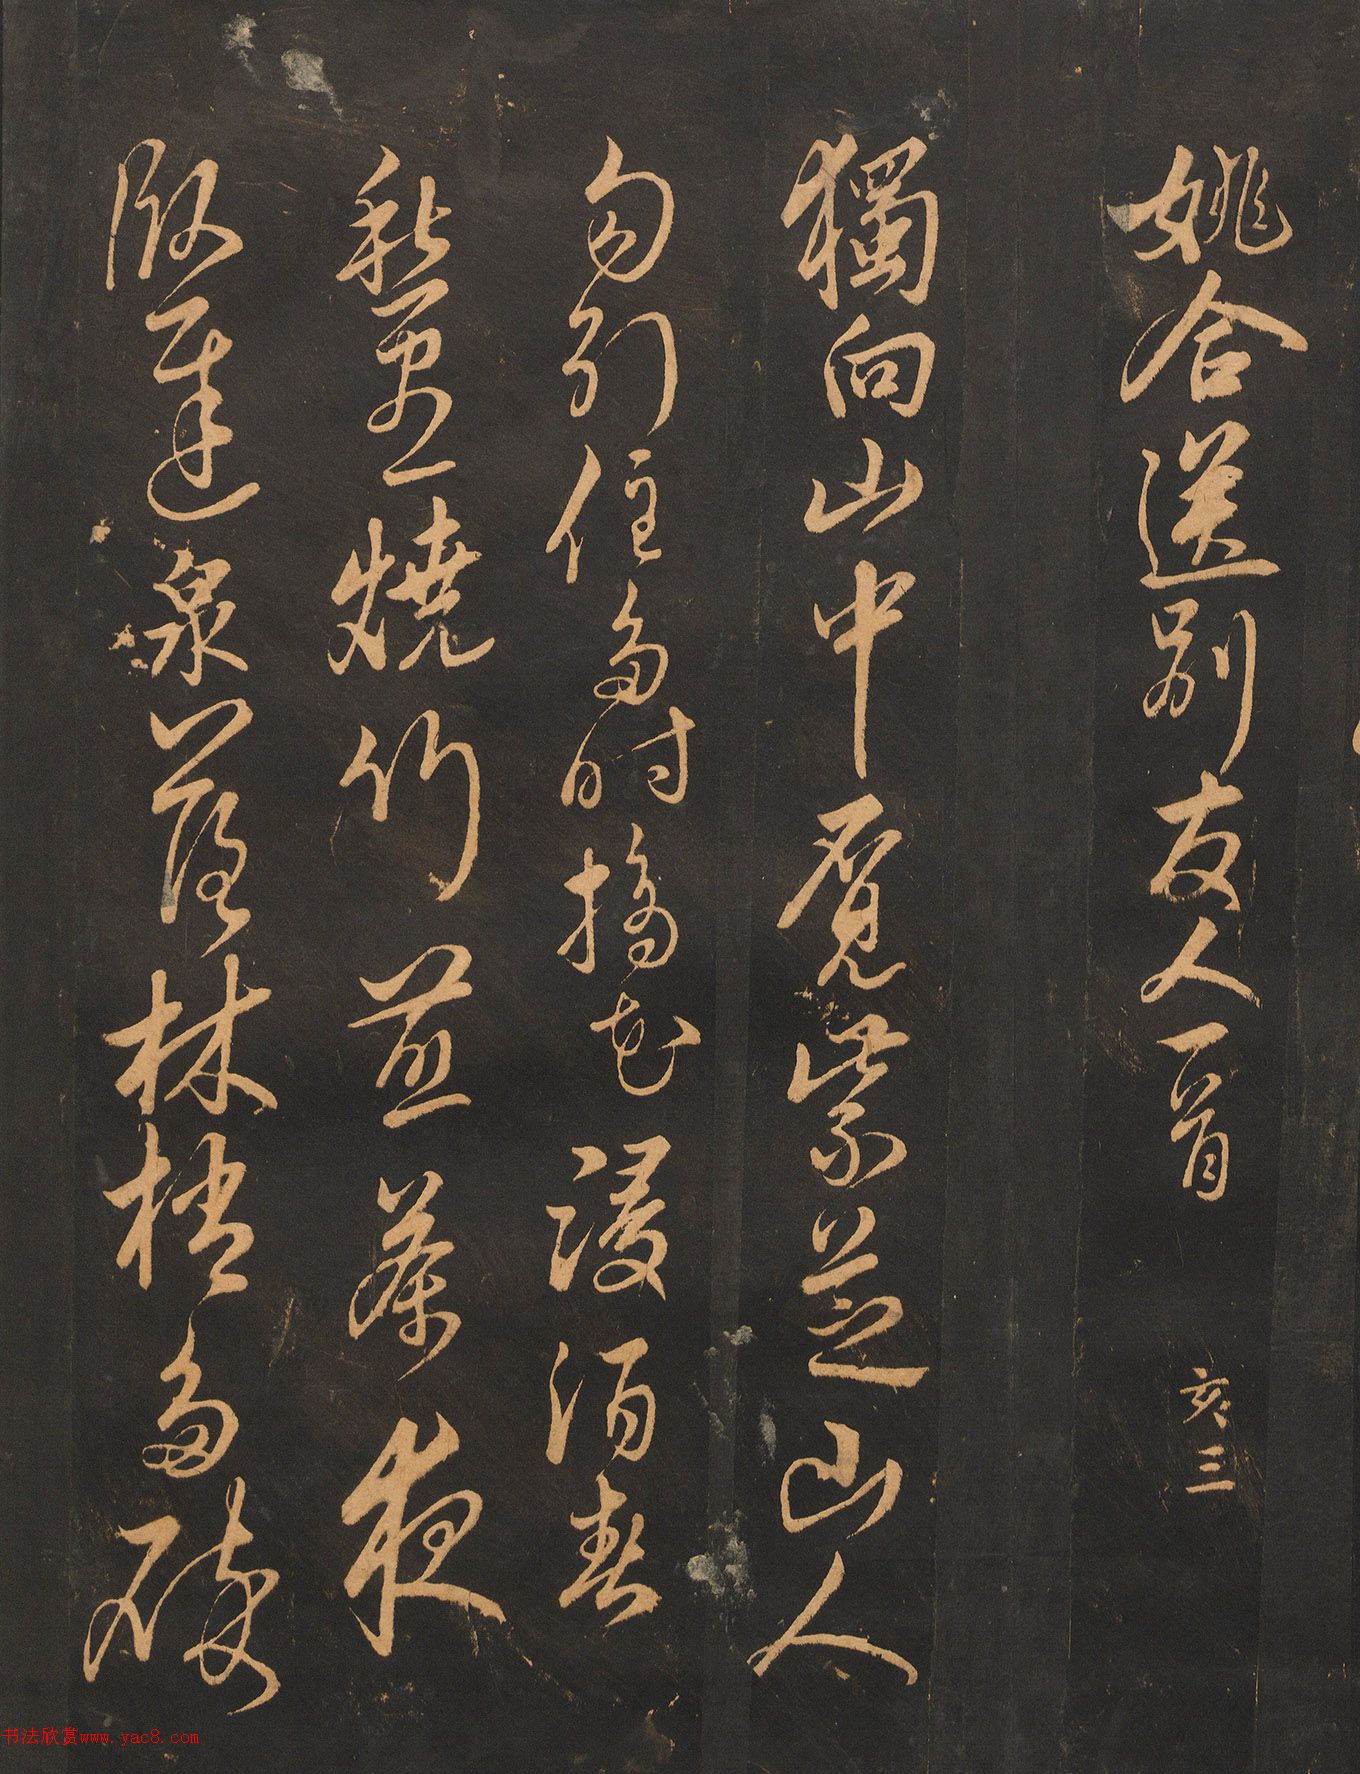 姚合送别友人一首 亥三
獨向山中覓紫芝山人
勾引住多時摘花浸酒春
愁盡燒竹煎茶夜
臥遲泉落林梢多碎
书法欣赏www.yac8.com